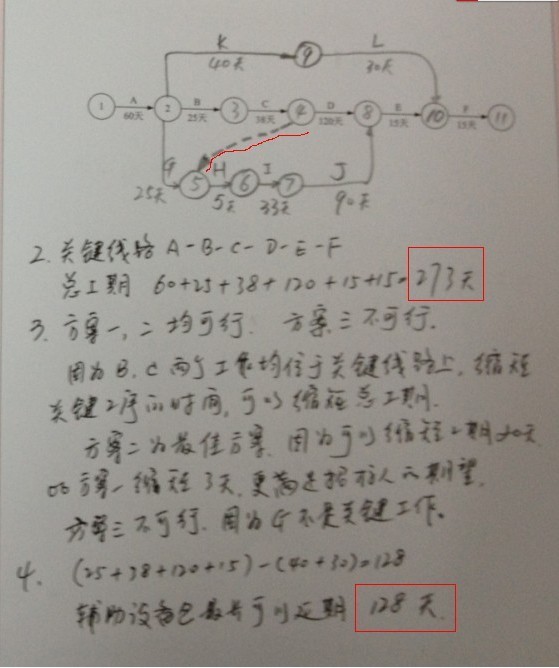 K
40天
9
L
30天
1
A
60天
2
B
25天
3
C
38天
4
D
120天
8
E
15天
10
F
15天
11
G
25天
5
H
5天
6
I
33天
7
J
90天
2. 关键线路 A-B-C-D-E-F
总工期 60+25+38+120+15+15=273天
3. 方案一,二均可行. 方案三不可行.
因为B.C两个工作均位于关键线路上,缩短
关键工序的时间,可以缩短总工期.
方案二为最佳方案. 因为可以缩短工期
方案一缩短3天,更满足招标人的期望.
方案三不可行.因为G不是关键工作。
4. (25+38+120+15)-(40+30)=128
辅助设备包最长可以延期 128天.